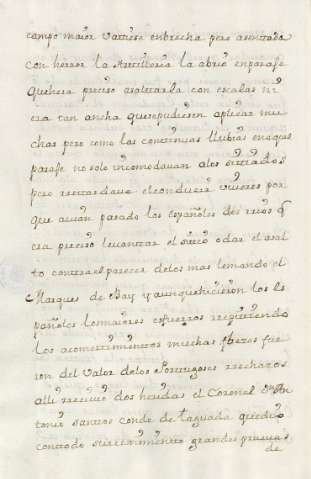 campo maior vatiese enbrecha pero asentada
con herror la Artilleria la abrió enparaje
quehera preciso asaltarla con escalas ni
era tan ancha quesepudiesen aplicar mu
chas pero como las continuas llubias enaquel
paraje no solo incomodavan alos sitiados
pero retardava el conducir viveres por
que avian pasado los españoles dos rios q
era preciso levantar el sitio o dar el asal
to contra el parecer delos mas lo mando el
Marques de Bay y aunque hicieron los es
pañoles los maiores esfuerzos repitiendo
los acometimientos muchas veces fue
ron del valor delos Portugeses rechazos
alli recivió dos heridas el Coronel Dn An
tonio santos conde de taguada que dio
con todo su rejimiento grandes pruevas
de